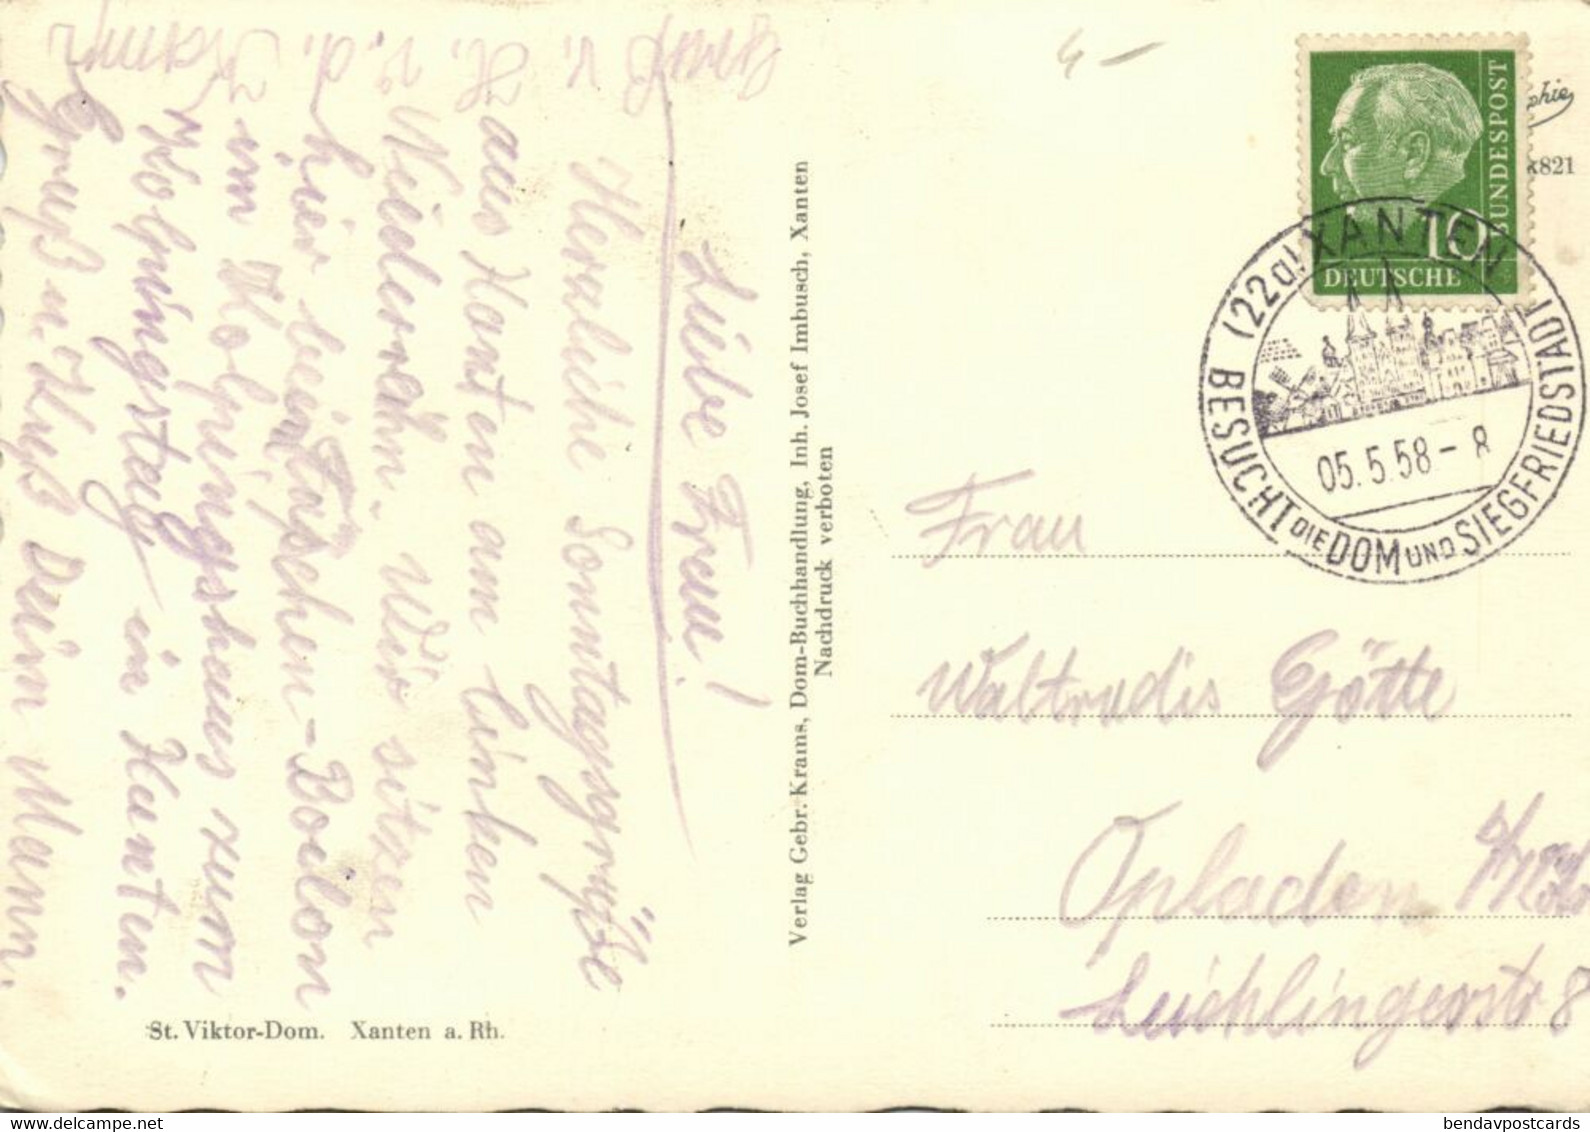 Gruß v.
H. v. d. Kamp
Liebe Frau!
Herzliche Sonntagsgrüße
aus Xanten am linken
Niederrhein. Wir sitzen
hier beim Täschen-Boelon
im Kolpingshaus zum
Kolpingstag in Xanten.
Gruß u. Kuß Dein Mann.
St. Viktor-Dom. Xanten a. Rh.
Verlag Gebr. Krams, Dom-Buchhandlung, Inh. Josef Imbusch, Xanten
Nachdruck verboten
4 –
DEUTSCHE
BUNDESPOST
10
phie
821
(22a) XANTEN
05.5.58 - 8
BESUCHT DIE DOM UND SIEGFRIEDSTADT
Frau
Waltrudis Götte
Opladen
Leichlingerstr 8
bendavpostcards
delcampe.net